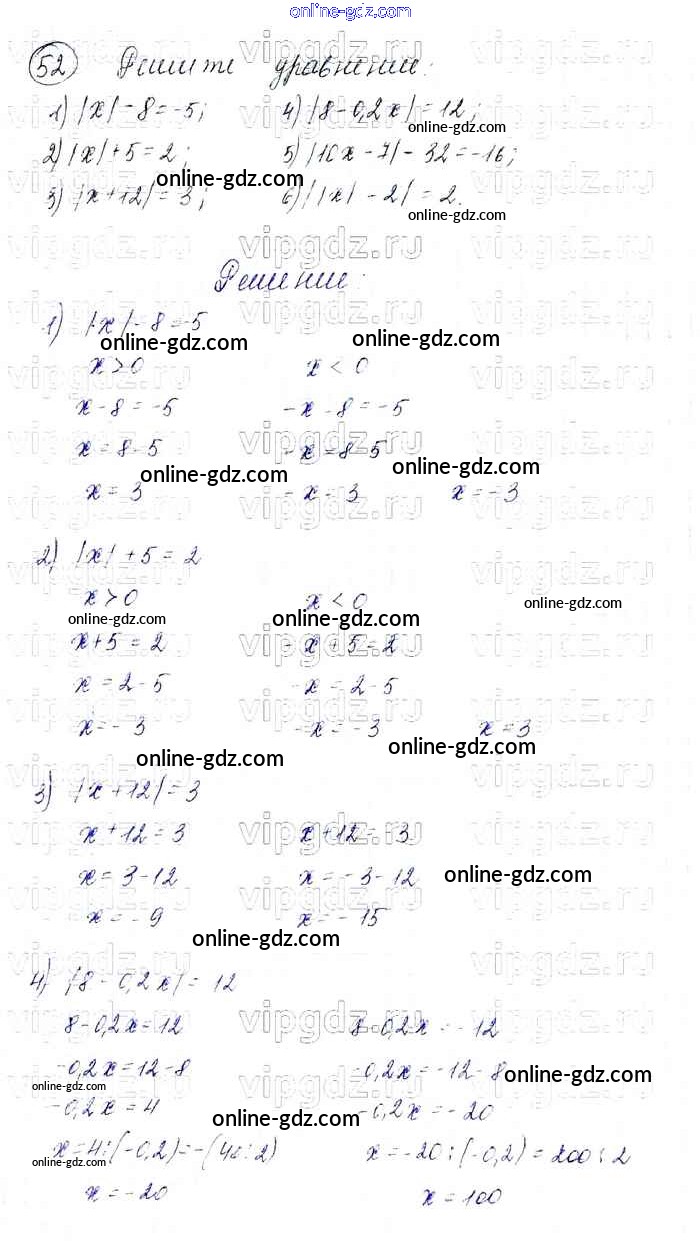 online-gdz.com
52 Решите уравнение:
1) |x| - 8 = -5; 4) |8 - 0,2x| = 12;
online-gdz.com
2) |x| + 5 = 2; 5) |10x - 7| - 32 = -16;
online-gdz.com
3) |x + 12| = 3; 6) ||x| - 2| = 2.
online-gdz.com
vipgdz.ru vipgdz.ru vipgdz.ru
Решение:
1) |x| - 8 = -5
online-gdz.com online-gdz.com
x > 0 x < 0
x - 8 = -5 -x - 8 = -5
x = 8 - 5 -x = 8-5
online-gdz.com online-gdz.com
x = 3 -x = 3 x = -3
2) |x| + 5 = 2
x > 0 x < 0
online-gdz.com online-gdz.com online-gdz.com
x + 5 = 2 -x + 5 = 2
x = 2 - 5 -x = 2 - 5
x = -3 -x = -3 x = 3
online-gdz.com online-gdz.com
3) |x + 12| = 3
x + 12 = 3 x + 12 = -3
x = 3 - 12 x = -3 - 12
online-gdz.com
x = -9 x = -15
online-gdz.com
4) |8 - 0,2x| = 12
8 - 0,2x = 12 8 - 0,2x = -12
-0,2x = 12 - 8 -0,2x = -12 - 8
online-gdz.com online-gdz.com
-0,2x = 4 -0,2x = -20
online-gdz.com
x = 4 : (-0,2) = -(40 : 2) x = -20 : (-0,2) = 200 : 2
online-gdz.com
x = -20 x = 100